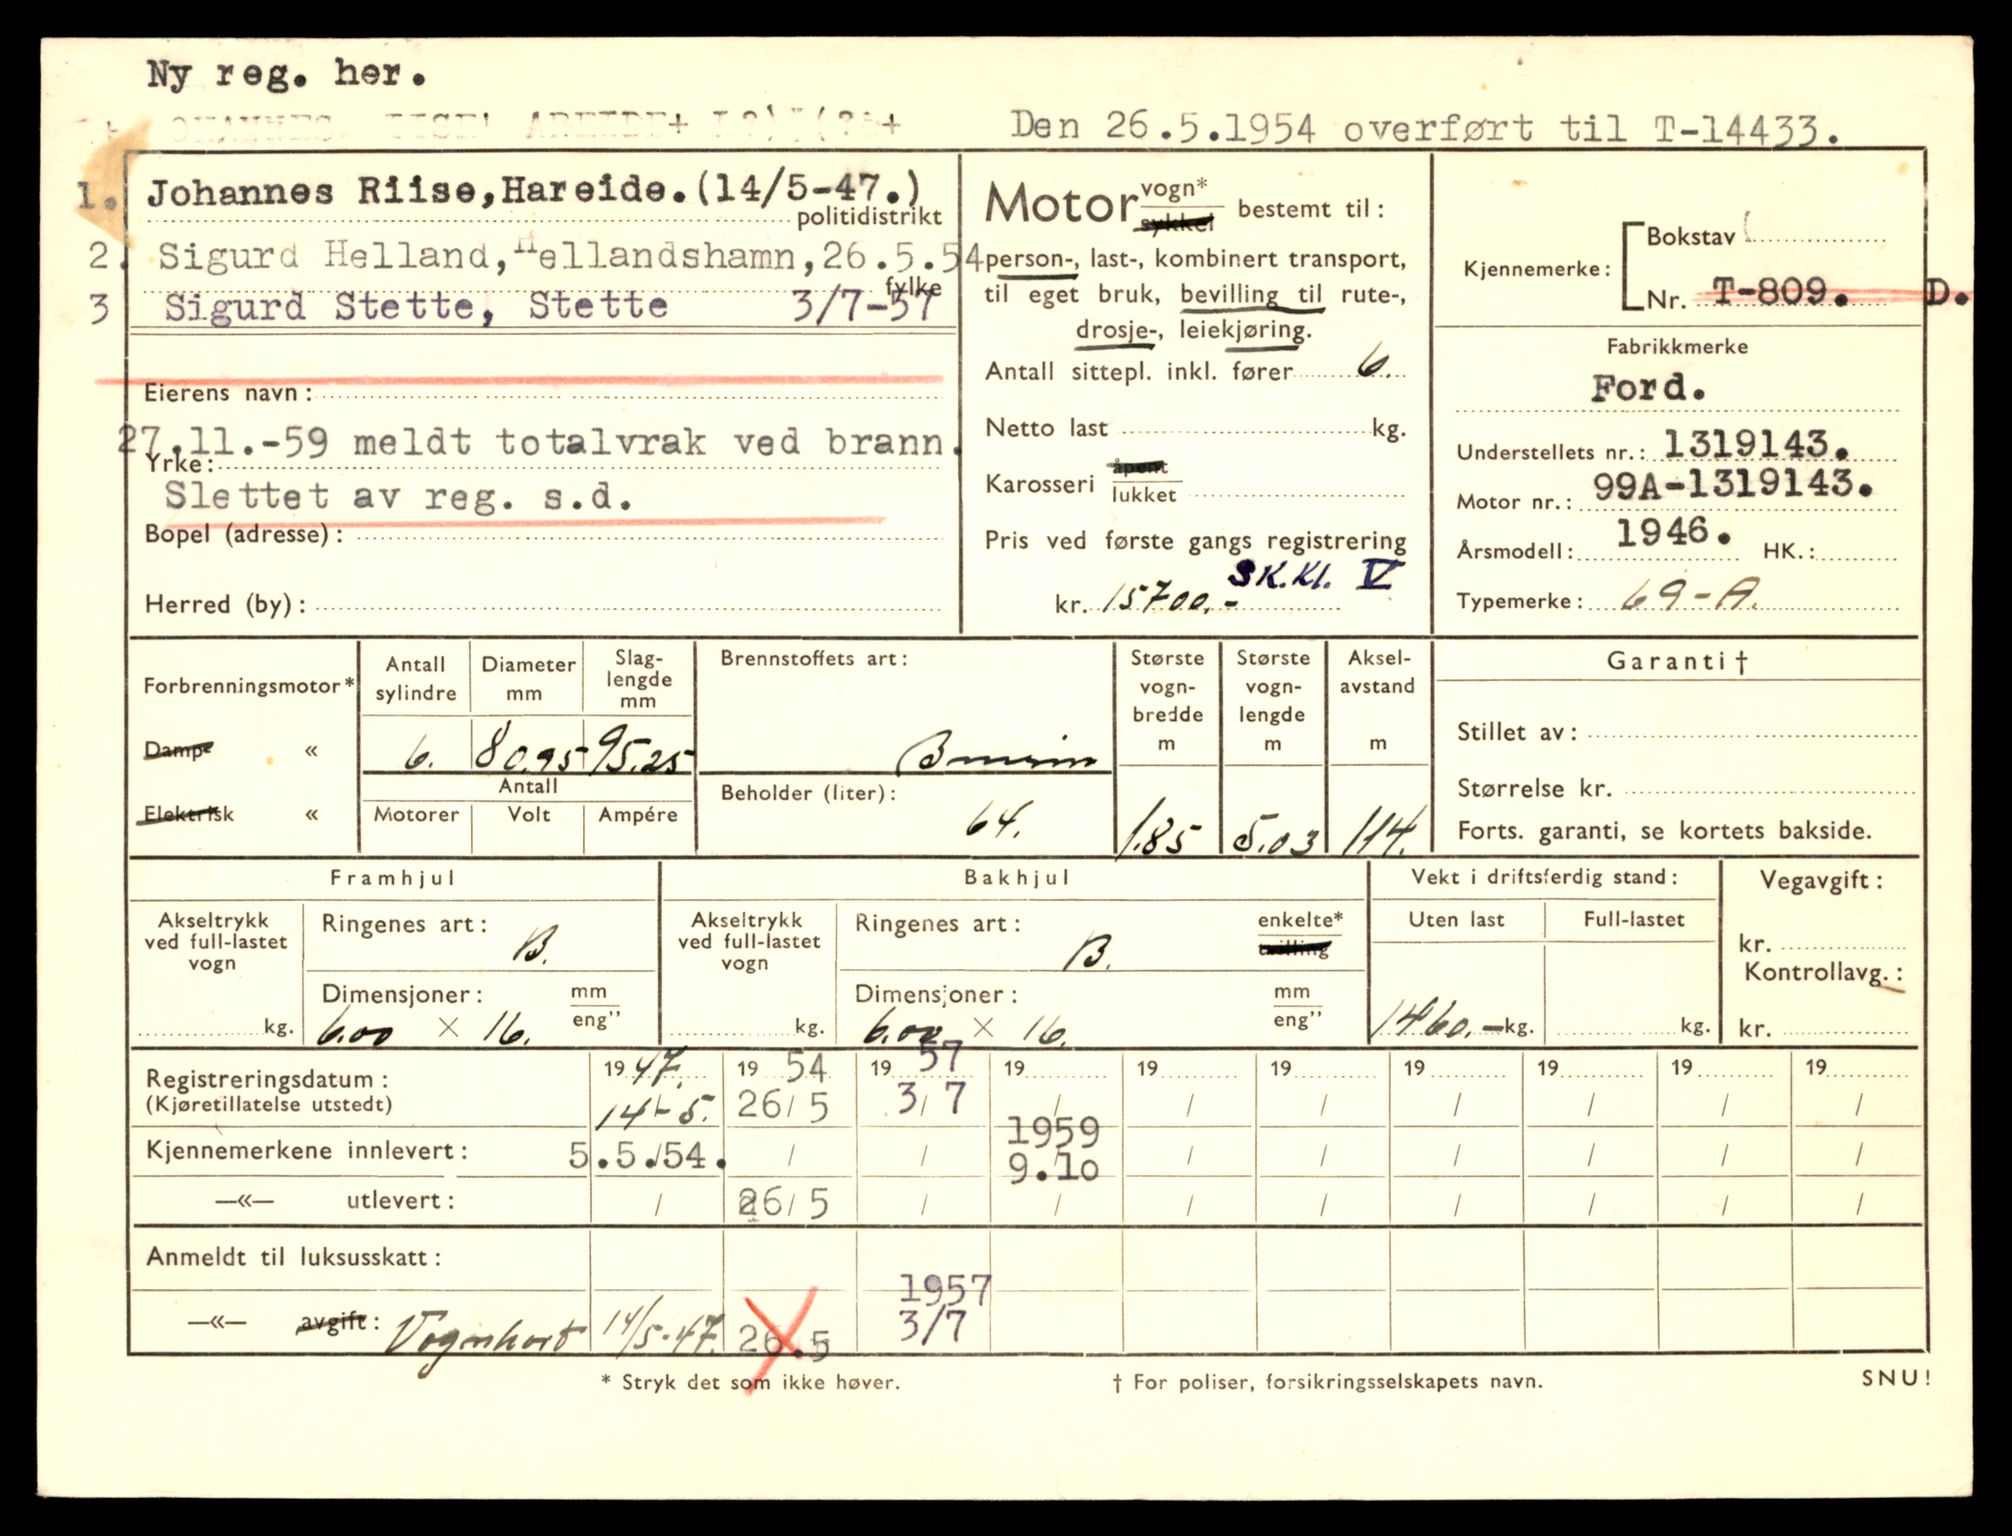 Ny reg. her.
Den 26.5.1954 overført til T-14433.
1. Johannes Riise,Hareide.(14/5-47.)
politidistrikt
2. Sigurd Helland,Hellandshamn,26.5.54
fylke
3 Sigurd Stette, Stette 3/7-57
Eierens navn:
27.11.-59 meldt totalvrak ved brann.
Yrke:
Slettet av reg. s.d.
Bopel (adresse):
Herred (by):
Motor vogn* sykkel bestemt til:
person-, last-, kombinert transport,
til eget bruk, bevilling til rute-,
drosje-, leiekjøring.
Antall sittepl. inkl. fører 6.
Netto last kg.
Karosseri åpent lukket
Pris ved første gangs registrering
SK.Kl. V
kr. 15700.-
Bokstav
Kjennemerke:
Nr. T-809. D.
Fabrikkmerke
Ford.
Understellets nr.: 1319143.
Motor nr.: 99A-1319143.
Årsmodell: 1946. HK.:
Typemerke: 69-A.
Forbrenningsmotor*
Damp- «
Elektrisk «
Antall sylindre
Diameter mm
Slag-lengde mm
6. 80.95 95.25
Antall
Motorer Volt Ampére
Brennstoffets art:
Bensin
Beholder (liter):
64.
Største vogn-bredde m
1.85
Største vogn-lengde m
5.03
Aksel-avstand m
114.
Garanti†
Stillet av:
Størrelse kr.
Forts. garanti, se kortets bakside.
Framhjul
Akseltrykk ved full-lastet vogn
kg.
Ringenes art: B.
Dimensjoner: mm eng"
6.00 × 16.
Bakhjul
Akseltrykk ved full-lastet vogn
kg.
Ringenes art: B.
enkelte* tvilling
Dimensjoner: mm eng"
6.00 × 16.
Vekt i driftsferdig stand:
Uten last Full-lastet
1460.- kg. kg.
Vegavgift:
kr.
Kontrollavg.:
kr.
Registreringsdatum: 19 47. 19 54 19 57 19 19 19 19 19 19 19
(Kjøretillatelse utstedt) 14-5. 26/5 3/7 / / / / / / /
1959
Kjennemerkene innlevert: 5.5.54. / / 9.10 / / / / / /
—«— utlevert: / 26/5 / / / / / / / /
Anmeldt til luksusskatt:
1957
—«— avgift: Vognkort 14/5-47. 26.5 3/7
* Stryk det som ikke høver.
† For poliser, forsikringsselskapets navn.
SNU!